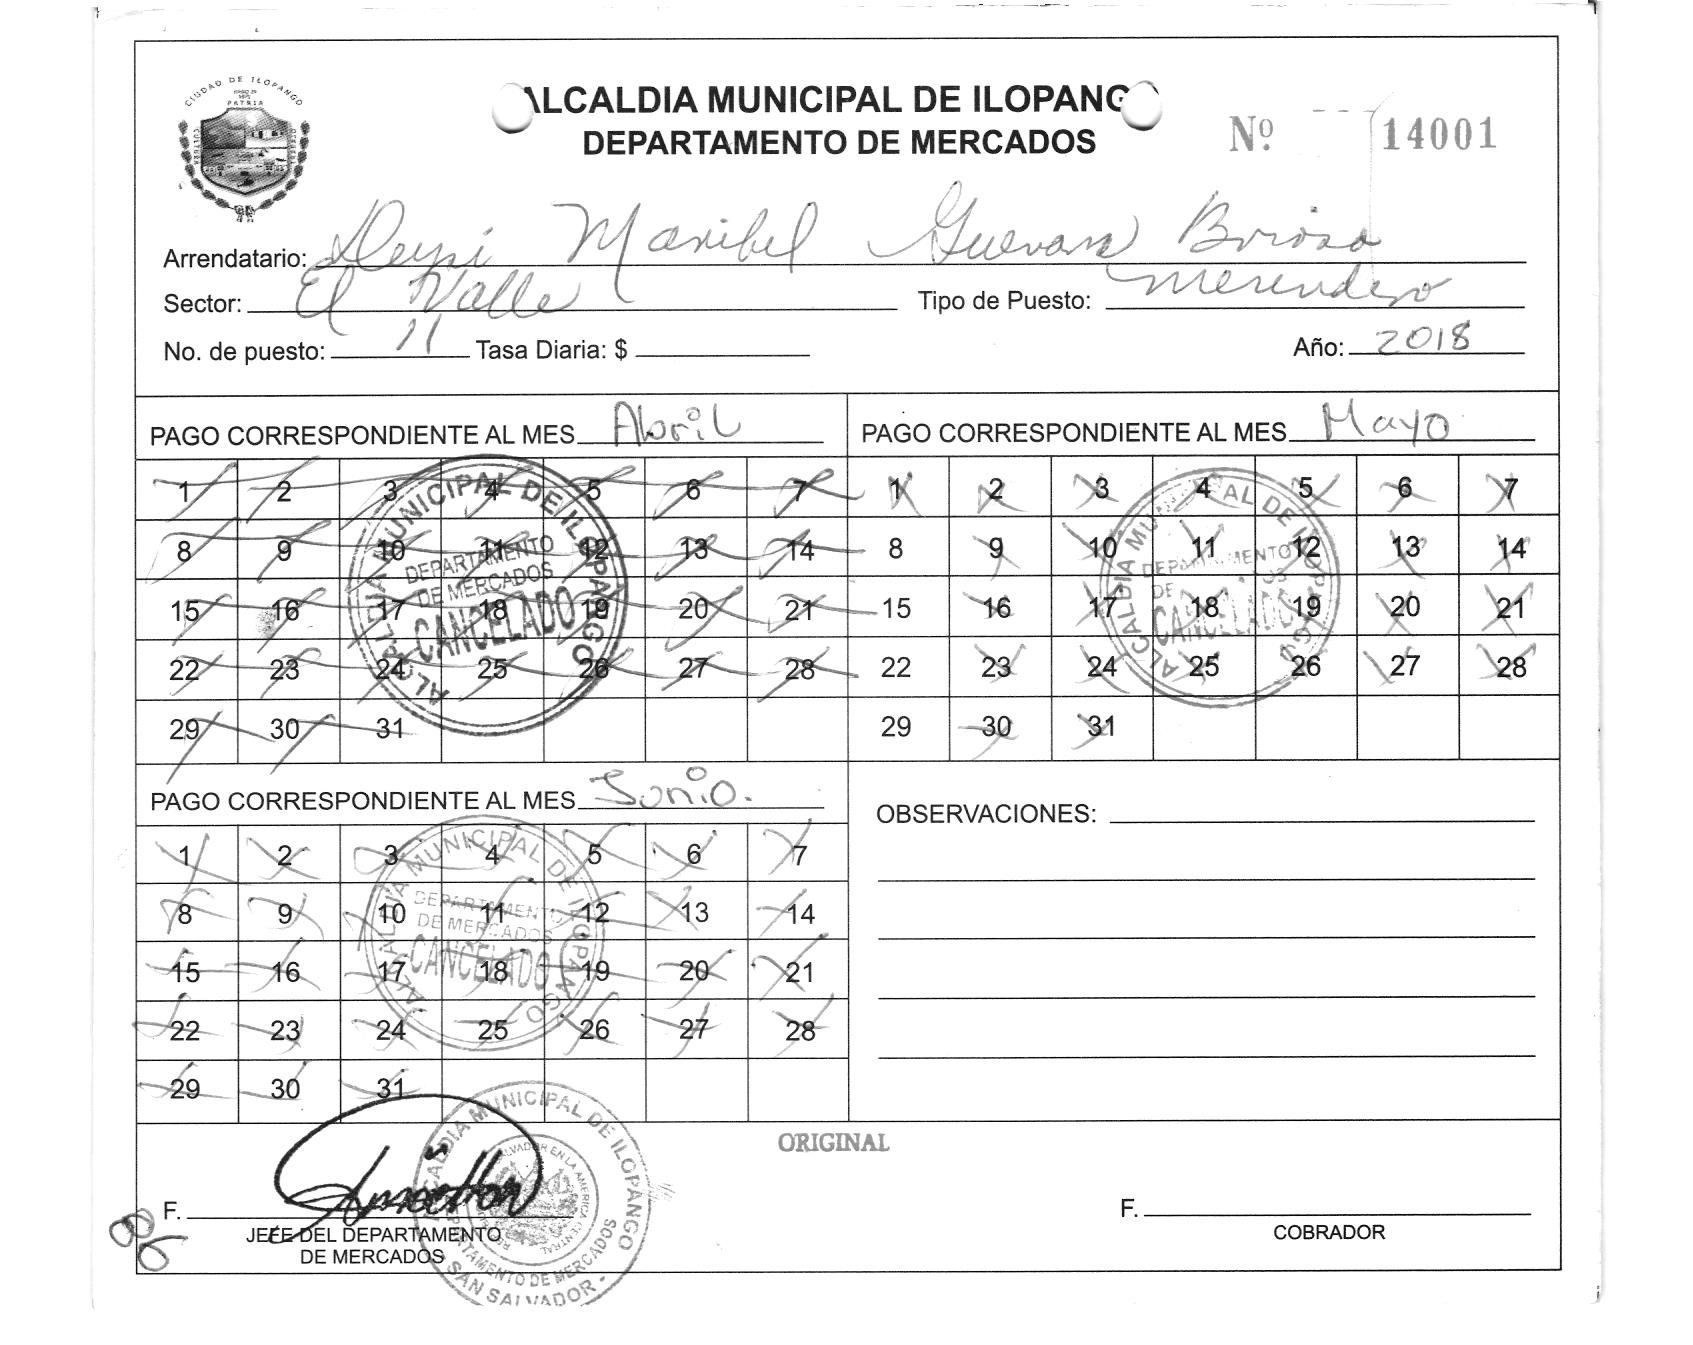 CIUDAD DE ILOPANGO
PATRIA
CULTURA
ALCALDIA MUNICIPAL DE ILOPANGO
DEPARTAMENTO DE MERCADOS
Nº 14001
Arrendatario: Deysi Maribel Guevara Brioso
Sector: El Valle Tipo de Puesto: Merendero
No. de puesto: 11 Tasa Diaria: $ Año: 2018
PAGO CORRESPONDIENTE AL MES Abril
1 2 3 4 5 6 7
8 9 10 11 12 13 14
15 16 17 18 19 20 21
22 23 24 25 26 27 28
29 30 31
ALCALDIA MUNICIPAL DE ILOPANGO
DEPARTAMENTO
DE MERCADOS
CANCELADO
PAGO CORRESPONDIENTE AL MES Mayo
1 2 3 4 5 6 7
8 9 10 11 12 13 14
15 16 17 18 19 20 21
22 23 24 25 26 27 28
29 30 31
ALCALDIA MUNICIPAL DE ILOPANGO
DEPARTAMENTO
DE MERCADOS
CANCELADO
PAGO CORRESPONDIENTE AL MES Junio.
1 2 3 4 5 6 7
8 9 10 11 12 13 14
15 16 17 18 19 20 21
22 23 24 25 26 27 28
29 30 31
ALCALDIA MUNICIPAL DE ILOPANGO
DEPARTAMENTO
DE MERCADOS
CANCELADO
OBSERVACIONES:
ORIGINAL
F.
JEFE DEL DEPARTAMENTO
DE MERCADOS
ALCALDIA MUNICIPAL DE ILOPANGO
DEPARTAMENTO DE MERCADOS
SAN SALVADOR
F.
COBRADOR